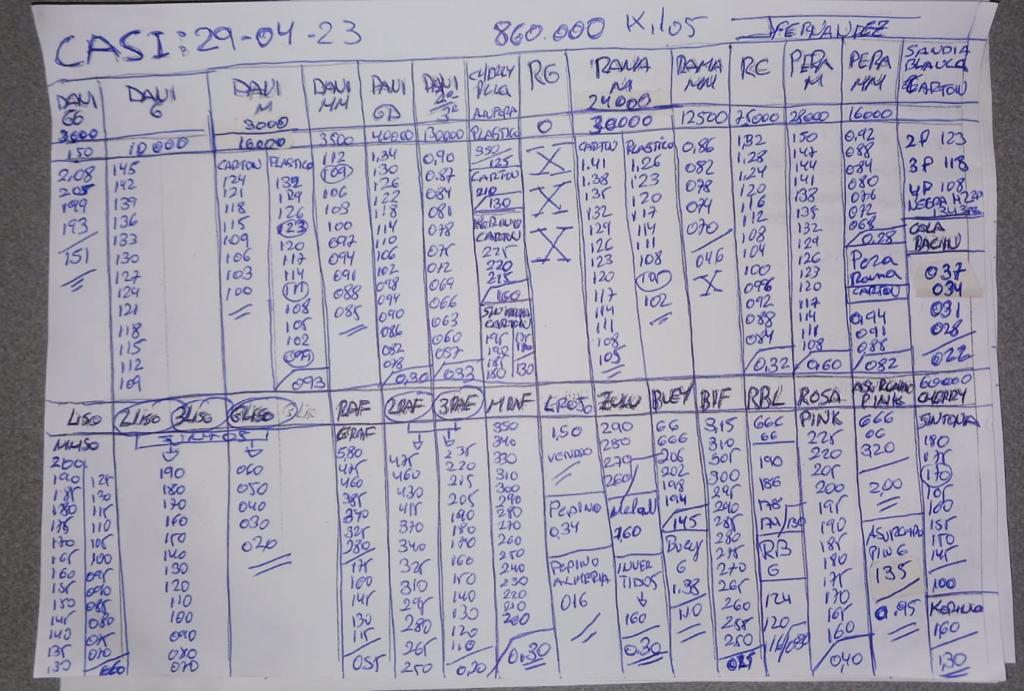 CASI: 29-04-23 860.000 Kilos FERNANDEZ
DANI GG DANI G DANI M DANI MM DANI GD DANI 2ª 3ª CHERRY PERA RG RAMA M RAMA MM RC PERA M PERA MM SANDIA BLANCA CARTON
3000 10000 3000 16000 3500 40000 130000 PLASTICO 0 24000 30000 12500 75000 28000 16000
DANI GG
3000
150
208
205
199
193
151
DANI G
10000
145
142
139
136
133
130
127
124
121
118
115
112
109
DANI M
3000
16000
CARTON
124
121
118
115
109
106
103
100
PLASTICO
132
129
126
123
120
117
114
111
108
105
102
099
093
DANI MM
3500
112
109
106
103
100
097
094
091
088
085
DANI GD
40000
1,34
130
126
122
118
114
110
106
102
098
094
090
086
082
078
0,30
DANI 2ª 3ª
130000
0,90
0.87
084
081
078
075
072
069
066
063
060
057
0,33
CHERRY PERA
PLASTICO
350
125
CARTON
210
130
CARTON
225
220
215
160
CARTON
195
190
185
180
130
RG
0
X
X
X
RAMA M
24000
30000
CARTON
1.41
1.38
135
132
129
126
123
120
117
114
111
108
105
PLASTICO
1,26
123
120
117
114
111
108
105
102
RAMA MM
12500
0,86
082
078
074
070
046
X
RC
75000
1,32
1,28
1,24
120
116
112
108
104
100
096
092
088
084
0,32
PERA M
28000
150
147
144
141
138
135
132
129
126
123
120
117
114
111
108
0,60
PERA MM
16000
0,92
088
084
080
076
072
068
0,28
Pera
Rama
CARTON
0,94
091
0,88
082
SANDIA BLANCA CARTON
2P 123
3P 118
4P 108
NEGRA
COLA
RACIMO
037
034
031
028
022
LISO 2LISO 3LISO GLISO 3LISO RAF 2RAF 3RAF MRAF LROSO ZULU BUEY BIF RBL ROSA PINK ASURCADO PINK 60000 CHERRY
LISO
MLISO
200
190
185
180
175
170
165
160
155
150
145
140
135
130
125
120
115
110
105
100
095
090
085
080
075
070
060
PINTOS
190
180
170
160
150
140
130
120
110
100
090
080
070
060
050
040
030
020
RAF
GRAF
580
475
460
385
370
325
280
175
160
145
130
115
055
2RAF
475
460
430
415
370
340
325
310
295
280
265
250
3RAF
235
220
215
205
190
180
170
160
150
140
130
120
110
0,20
MRAF
350
340
330
310
300
290
280
270
260
250
240
230
220
210
200
0,30
1,50
VENDIDO
PEPINO
0,34
PEPINO
ALMERIA
016
ZULU
290
280
270
260
160
INVERTIDOS
160
0,30
BUEY
GG
GGG
206
202
198
194
145
BUEY
G
1.98
110
BIF
3,15
310
305
300
295
290
285
280
275
270
265
260
255
250
025
RBL
GGG
GG
190
186
178
174/130
RB
G
124
120
ROSA
PINK
225
220
205
200
195
190
185
180
175
170
165
160
040
ASURCADO
PINK
GGG
GG
320
2,00
ASURCADO
PIN G
135
0.95
60000
CHERRY
180
175
170
165
160
155
150
145
100
160
130